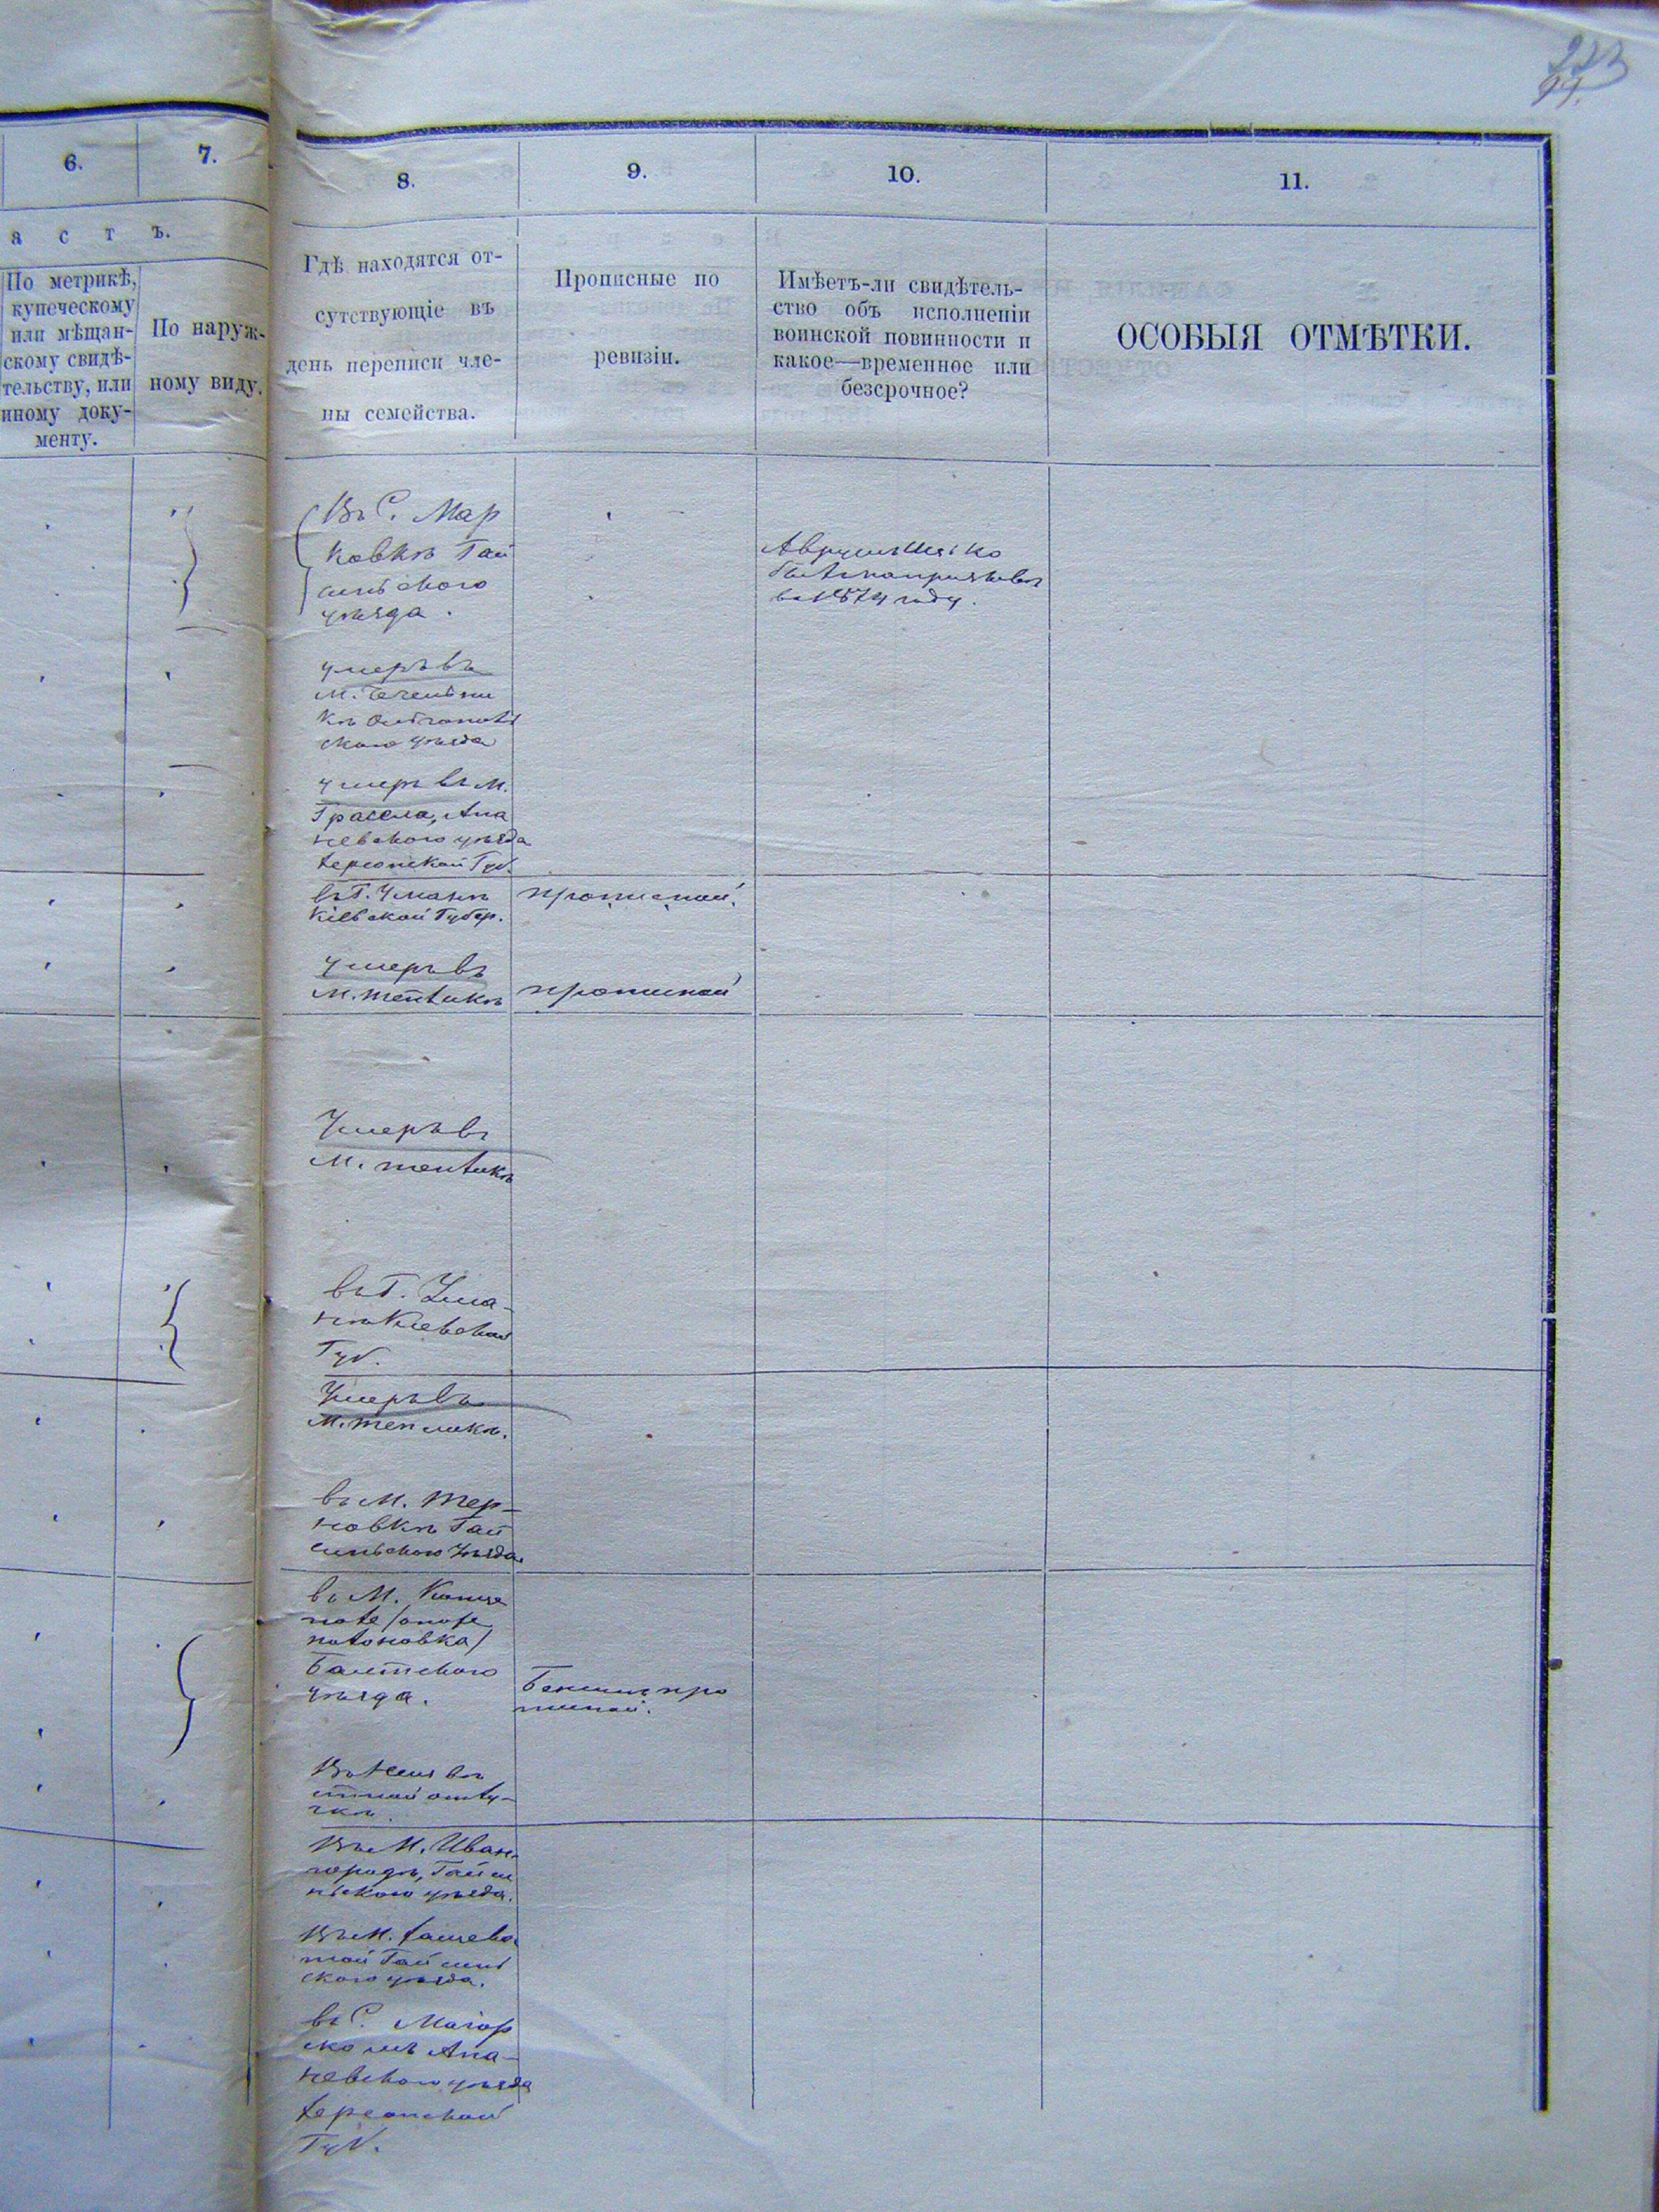 223
99.
6.
7.
8.
9.
10.
11.
а с т ь.
По метрикѣ,
купеческому
или мѣщан-
скому свидѣ-
тельству, или
иному доку-
менту.
По наруж-
ному виду.
Гдѣ находятся от-
сутствующіе въ
день переписи чле-
ны семейства.
Прописные по
ревизіи.
Имѣетъ-ли свидѣтель-
ство объ исполненіи
воинской повинности и
какое—временное или
безсрочное?
ОСОБЫЯ ОТМѢТКИ.
Въ С. Мар
ковкѣ Гай
синьского
уѣзда.
въ 1874 году.
умеръ въ
М.
ского уѣзда
умеръ въ М.
Гросела, Ана
невского уѣзда
Херсонской Губ.
въ Г. Уманѣ
Кіевской Губер.
прописной.
умеръ въ
М. Тепликѣ
прописной
Умеръ въ
М. Тепликѣ
въ Г. Ума-
нѣ Кіевской
Губ.
Умеръ въ
М. Тепликѣ.
въ М. Тер-
новкѣ Гай
синьского Уѣзда
въ М.
Балтского
уѣзда.
про
писной.
Въ М. Иван-
городѣ, Гайси
ньского уѣзда.
Въ М. Хащева
той Гайсинь
ского уѣзда.
въ С. Маіор
скомъ Ана-
невского уѣзда
Херсонской
Губ.